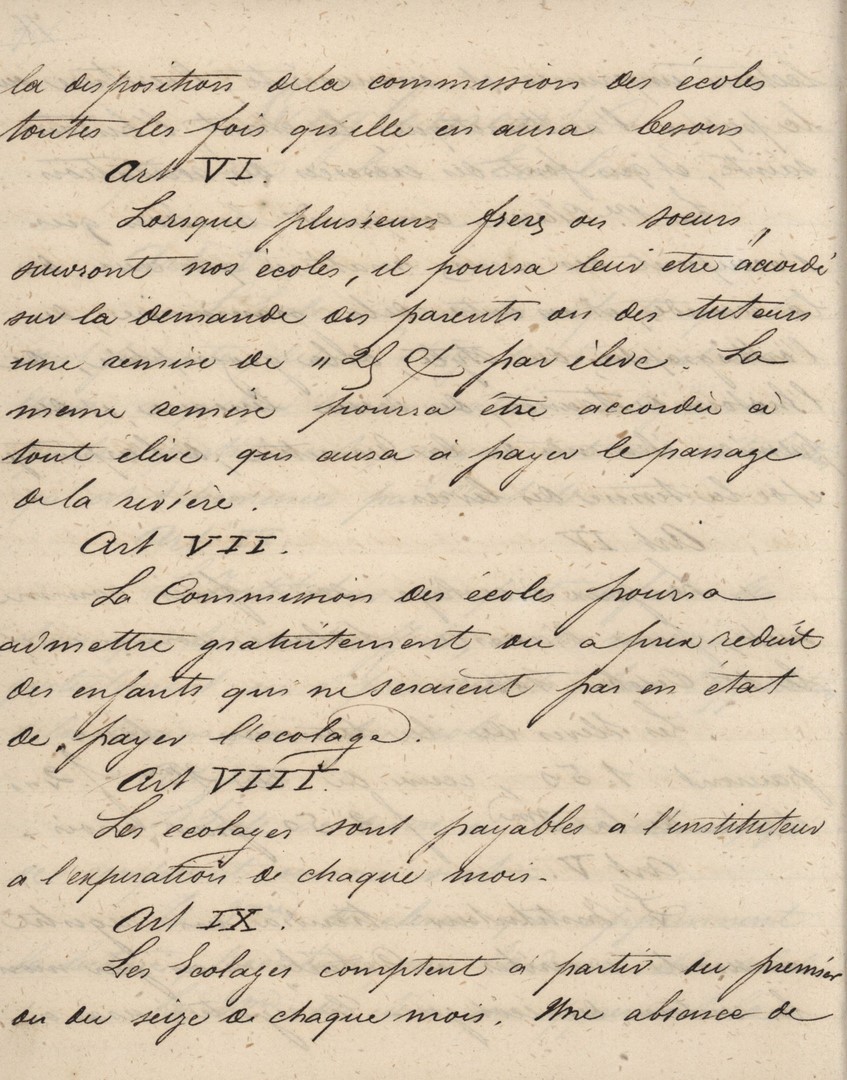 la desposition dela commission des écoles
toutes les fois qu'elle en aura besoin
Art VI.
Lorsque plusieurs freres ou sœurs,
suivront nos écoles, il pourra leur etre accordé
sur la demande des parents ou des tuteurs
une remise de "25 c/ par élève. La
meme remise pourra être accordée à
tout élève qui aura à payer le passage
dela rivière.
Art VII.
La Commission des écoles pourra
admettre gratuitement ou a prix reduit
des enfants qui ne seraient pas en état
de payer l'ecolage.
Art VIII.
Les ecolages sont payables à l'instituteur
a l'expiration de chaque mois.
Art IX.
Les Ecolages comptent à partir du premier
ou du seize de chaque mois. Une absence de